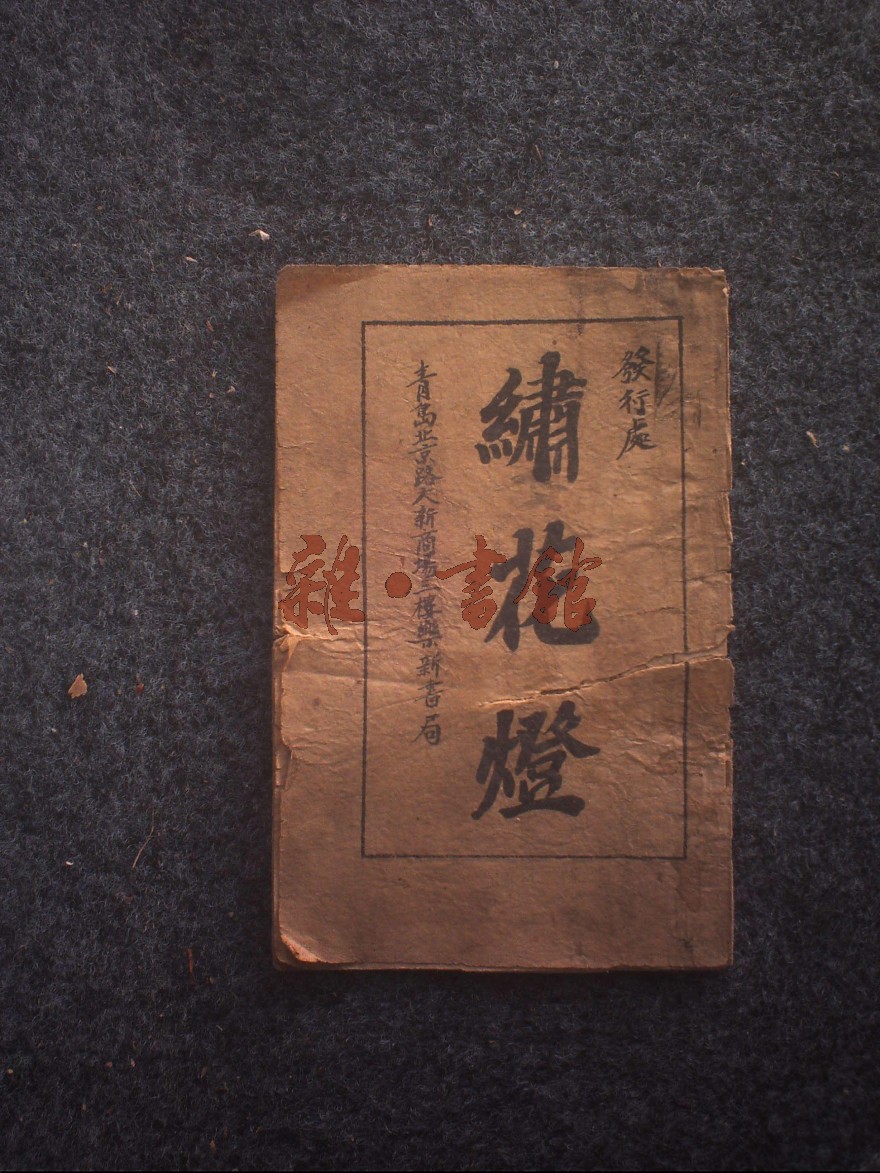 發行處
繡花燈
青島北京路天新商場三樓樂新書局
雜·書館